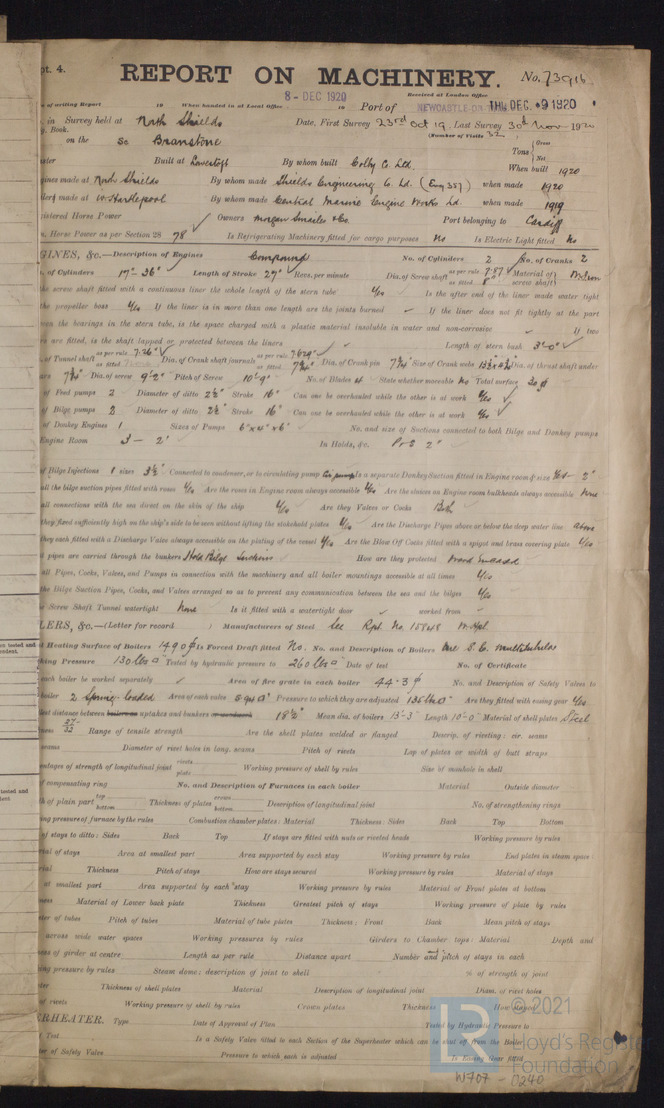 pt. 4.
REPORT ON MACHINERY. No. 73916
of writing Report 19 When handed in at Local Office 8 - DEC 1920 19 Port of NEWCASTLE-ON Received at London Office THU. DEC. 9 1920
in Survey held at North Shields Date, First Survey 23rd Oct 19, Last Survey 30th Nov 1920
Book. (Number of Visits 32
on the Sc Branstone Tons { Gross Net
Built at Lowestoft By whom built Colby & Ltd. When built 1920
gines made at North Shields By whom made Shields Engineering Co. Ltd. (Eng 357) when made 1920
made at W. Hartlepool By whom made Central Marine Engine Works Ld. when made 1919
istered Horse Power Owners Morgan Smailes & Co. Port belonging to Cardiff
Horse Power as per Section 28 78 Is Refrigerating Machinery fitted for cargo purposes No Is Electric Light fitted No
GINES, &c.—Description of Engines Compound No. of Cylinders 2 No. of Cranks 2
of Cylinders 17" - 36" Length of Stroke 27" Revs. per minute Dia. of Screw shaft as per rule 7.87 as fitted 8" Material of screw shaft
the screw shaft fitted with a continuous liner the whole length of the stern tube Yes Is the after end of the liner made water tight
the propeller boss Yes If the liner is in more than one length are the joints burned If the liner does not fit tightly at the part
the bearings in the stern tube, is the space charged with a plastic material insoluble in water and non-corrosive If two
are fitted, is the shaft lapped or protected between the liners Length of stern bush 3'-0"
of Tunnel shaft as per rule 7.26" as fitted Dia. of Crank shaft journals as per rule 7.629" as fitted 7¾" Dia. of Crank pin 7¾" Size of Crank webs Dia. of thrust shaft under
7¾" Dia. of screw 9'-2" Pitch of Screw 10'-9" No. of Blades 4 State whether moveable No Total surface
of Feed pumps 2 Diameter of ditto 2½" Stroke 16" Can one be overhauled while the other is at work Yes
of Bilge pumps 2 Diameter of ditto 2½" Stroke 16" Can one be overhauled while the other is at work Yes
of Donkey Engines 1 Sizes of Pumps 6"x4"x6" No. and size of Suctions connected to both Bilge and Donkey pumps
Engine Room 3 - 2" In Holds, &c. P&S 2"
of Bilge Injections 1 sizes 3½" Connected to condenser, or to circulating pump Is a separate Donkey Suction fitted in Engine room & size Yes - 2"
all the bilge suction pipes fitted with roses Yes Are the roses in Engine room always accessible Yes Are the sluices on Engine room bulkheads always accessible None
all connections with the sea direct on the skin of the ship Yes Are they Valves or Cocks Both
they fixed sufficiently high on the ship's side to be seen without lifting the stokehold plates Yes Are the Discharge Pipes above or below the deep water line above
they each fitted with a Discharge Valve always accessible on the plating of the vessel Yes Are the Blow Off Cocks fitted with a spigot and brass covering plate Yes
pipes are carried through the bunkers Hold Bilge Suctions How are they protected Wood Encased
all Pipes, Cocks, Valves, and Pumps in connection with the machinery and all boiler mountings accessible at all times Yes
the Bilge Suction Pipes, Cocks, and Valves arranged so as to prevent any communication between the sea and the bilges Yes
Screw Shaft Tunnel watertight None Is it fitted with a watertight door worked from
LERS, &c.—(Letter for record ) Manufacturers of Steel See Rpt. No. 15848 W. Hpl.
Heating Surface of Boilers 1490 Is Forced Draft fitted No. No. and Description of Boilers One S.E. Multitubular
king Pressure 130 lbs Tested by hydraulic pressure to 260 lbs Date of test No. of Certificate
each boiler be worked separately Area of fire grate in each boiler 44.3 No. and Description of Safety Valves to
boiler 2 Spring loaded Area of each valve Pressure to which they are adjusted 135 lbs Are they fitted with easing gear Yes
distance between uptakes and bunkers 18½" Mean dia. of boilers 13'-3" Length 10'-0" Material of shell plates Steel
Range of tensile strength Are the shell plates welded or flanged Descrip. of riveting: cir. seams
seams Diameter of rivet holes in long. seams Pitch of rivets Lap of plates or width of butt straps
entages of strength of longitudinal joint rivets plate Working pressure of shell by rules Size of manhole in shell
of compensating ring No. and Description of Furnaces in each boiler Material Outside diameter
of plain part top bottom Thickness of plates crown bottom Description of longitudinal joint No. of strengthening rings
ing pressure of furnace by the rules Combustion chamber plates: Material Thickness: Sides Back Top Bottom
of stays to ditto: Sides Back Top If stays are fitted with nuts or riveted heads Working pressure by rules
rial of stays Area at smallest part Area supported by each stay Working pressure by rules End plates in steam space:
rial Thickness Pitch of stays How are stays secured Working pressure by rules Material of stays
at smallest part Area supported by each stay Working pressure by rules Material of Front plates at bottom
ness Material of Lower back plate Thickness Greatest pitch of stays Working pressure of plate by rules
eter of tubes Pitch of tubes Material of tube plates Thickness: Front Back Mean pitch of stays
across wide water spaces Working pressures by rules Girders to Chamber tops: Material Depth and
ness of girder at centre Length as per rule Distance apart Number and pitch of stays in each
ing pressure by rules Steam dome: description of joint to shell % of strength of joint
Thickness of shell plates Material Description of longitudinal joint Diam. of rivet holes
of rivets Working pressure of shell by rules Crown plates Thickness How stayed
ERHEATER. Type Date of Approval of Plan Tested by Hydraulic Pressure to
Test Is a Safety Valve fitted to each Section of the Superheater which can be shut off from the Boiler
ter of Safety Valve Pressure to which each is adjusted Is Easing Gear fitted
LR © 2021
Lloyd's Register
Foundation
W707 - 0240